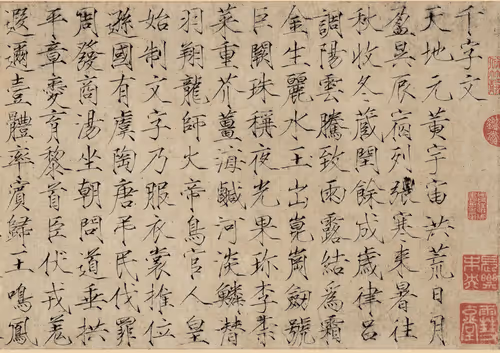 千字文
天地元黃宇宙洪荒日月
盈昃辰宿列張寒來暑往
秋收冬藏閏餘成歲律呂
調陽雲騰致雨露結爲霜
金生麗水玉出崑崗劒號
巨闕珠稱夜光果珍李柰
菜重芥薑海鹹河淡鱗替
羽翔龍師火帝鳥官人皇
始制文字乃服衣裳推位
遜國有虞陶唐弔民伐罪
周發商湯坐朝問道垂拱
平章愛育黎首臣伏戎羌
遐邇壹體率賓歸王鳴鳳